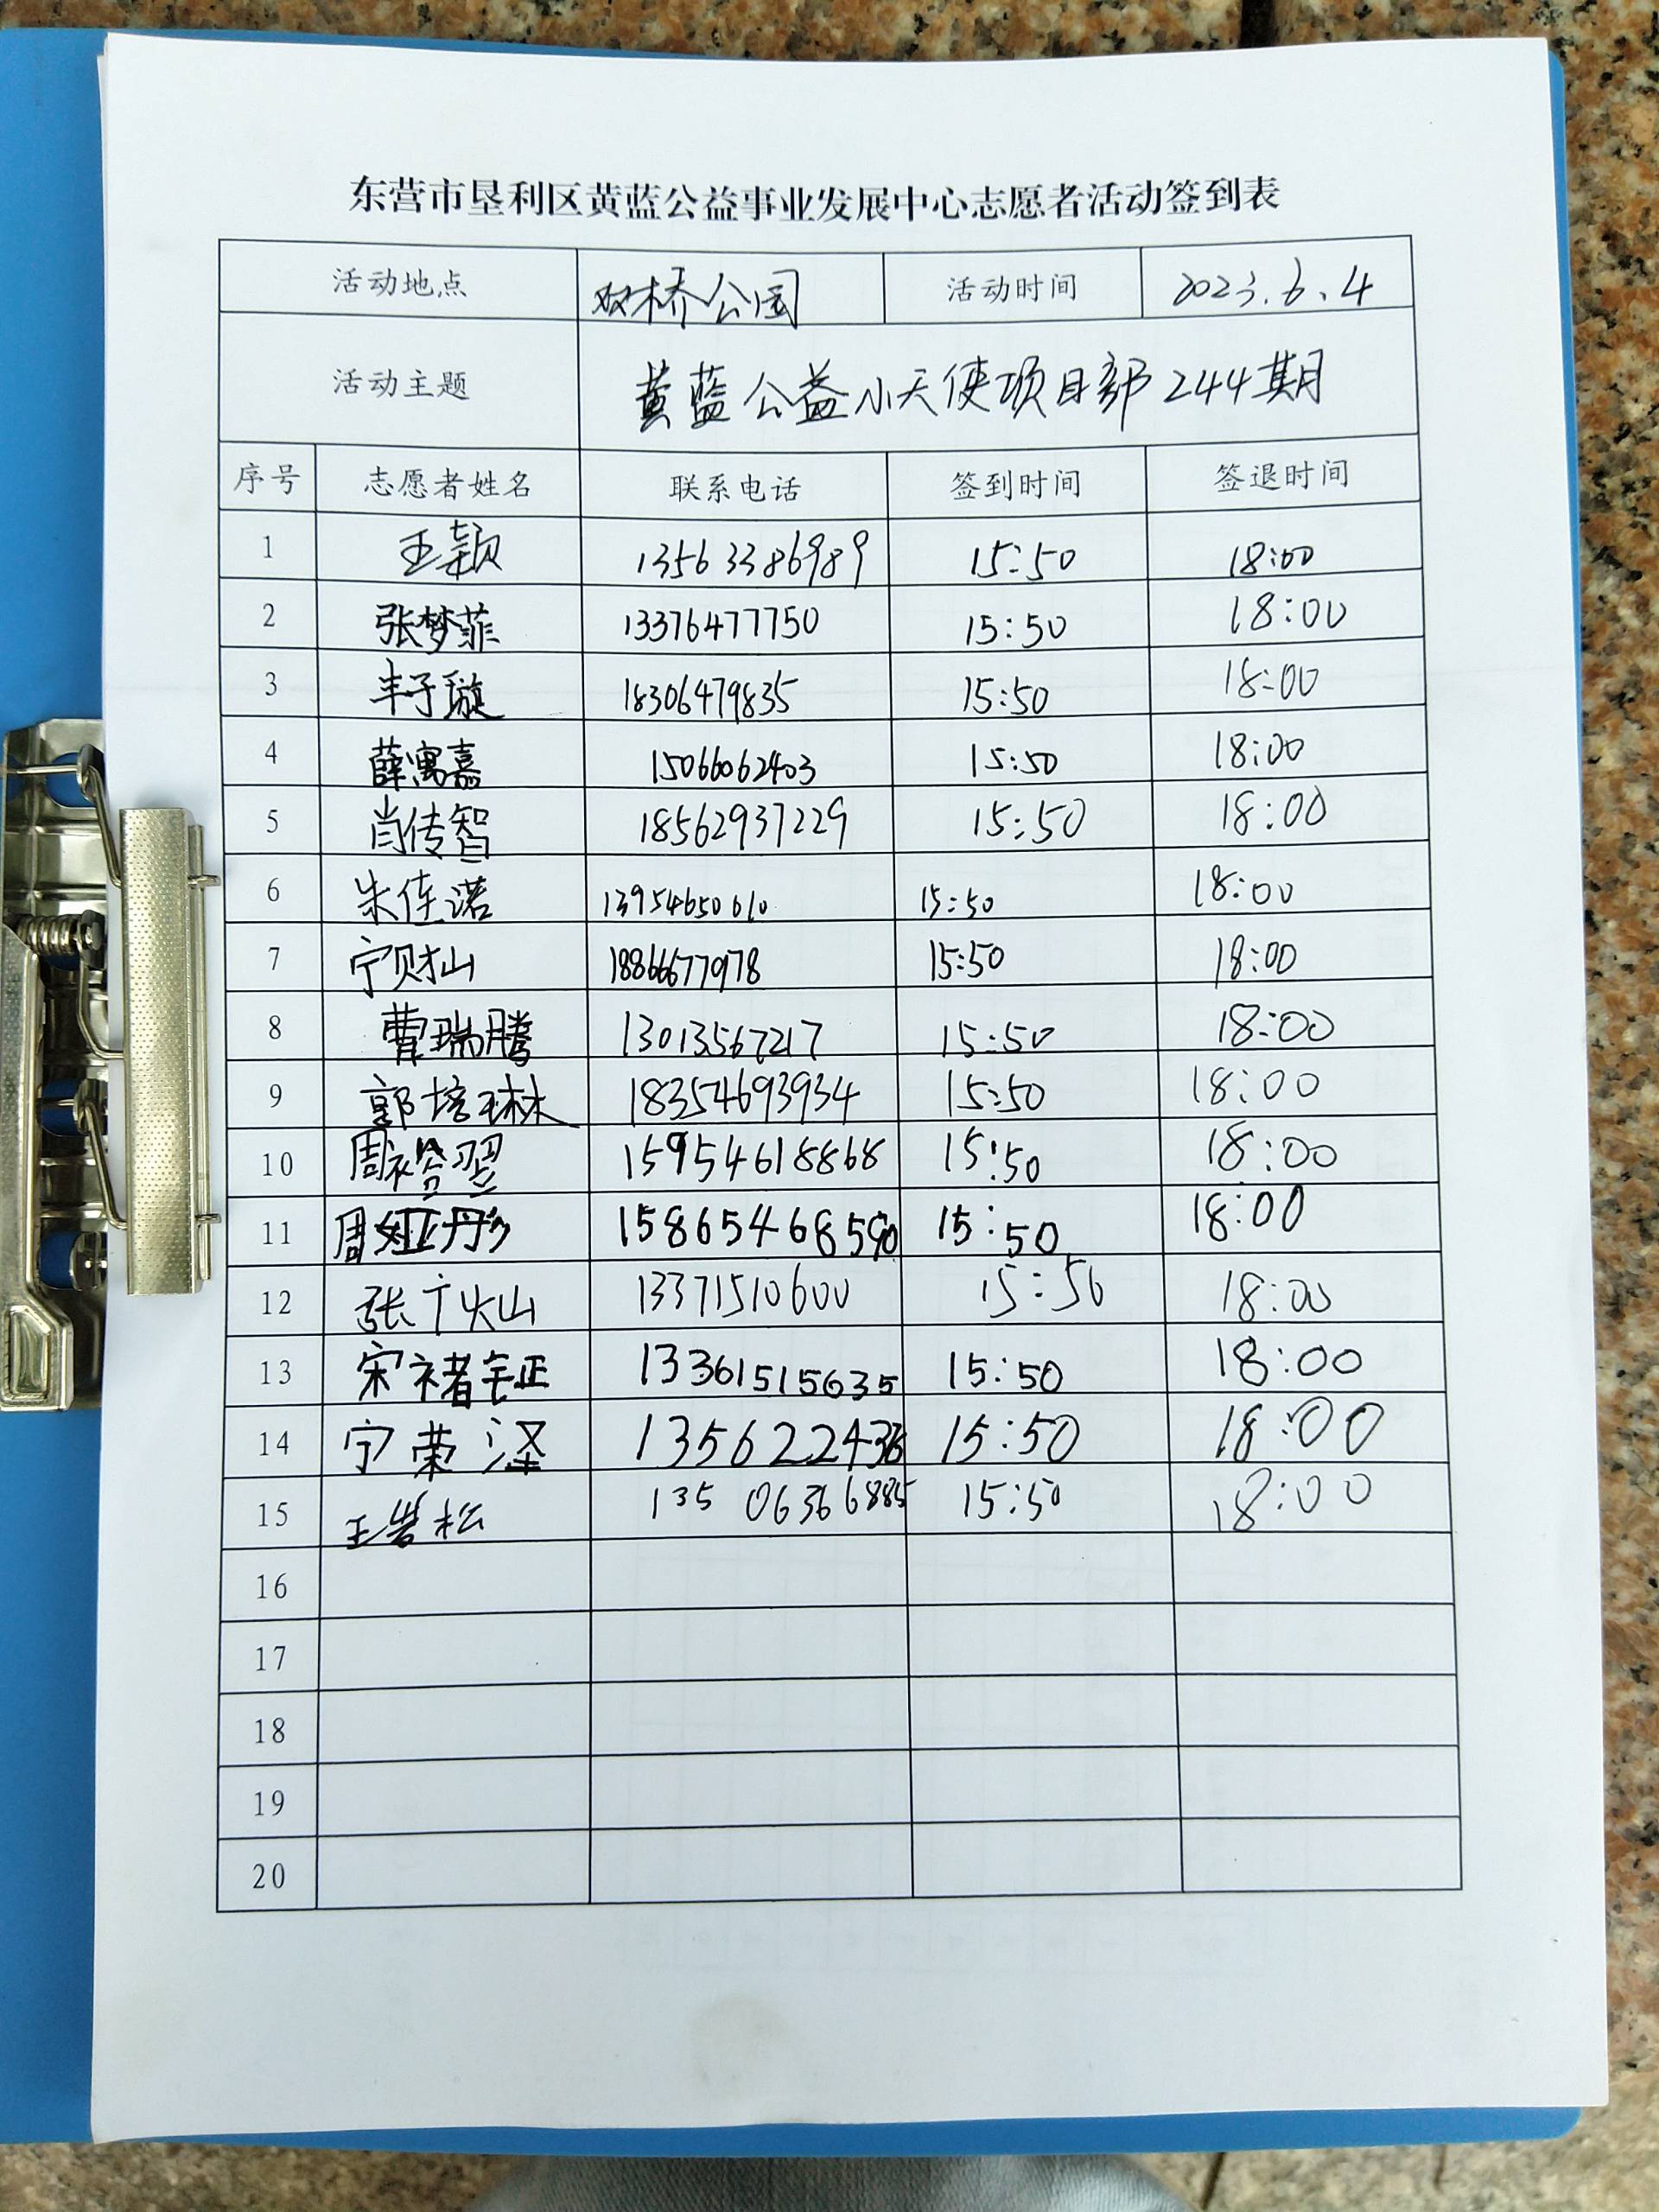 东营市垦利区黄蓝公益事业发展中心志愿者活动签到表
活动地点 双桥公园 活动时间 2023.6.4
活动主题 黄蓝公益小天使项目部244期
序号 志愿者姓名 联系电话 签到时间 签退时间
1 王颖 13563386989 15:50 18:00
2 张梦菲 13376477750 15:50 18:00
3 丰子璇 18306479835 15:50 18:00
4 薛寓嘉 15066062403 15:50 18:00
5 肖传智 18562937229 15:50 18:00
6 朱佳诺 13954650610 15:50 18:00
7 宁财山 18866677978 15:50 18:00
8 曹瑞腾 13013567217 15:50 18:00
9 郭培琳 18354693934 15:50 18:00
10 周裕翌 15954618868 15:50 18:00
11 周娅彤 15865468590 15:50 18:00
12 张广火山 13371510600 15:50 18:00
13 宋禇钰 13361515635 15:50 18:00
14 宁荣泽 15:50 18:00
15 王松 13506366885 15:50 18:00
16
17
18
19
20